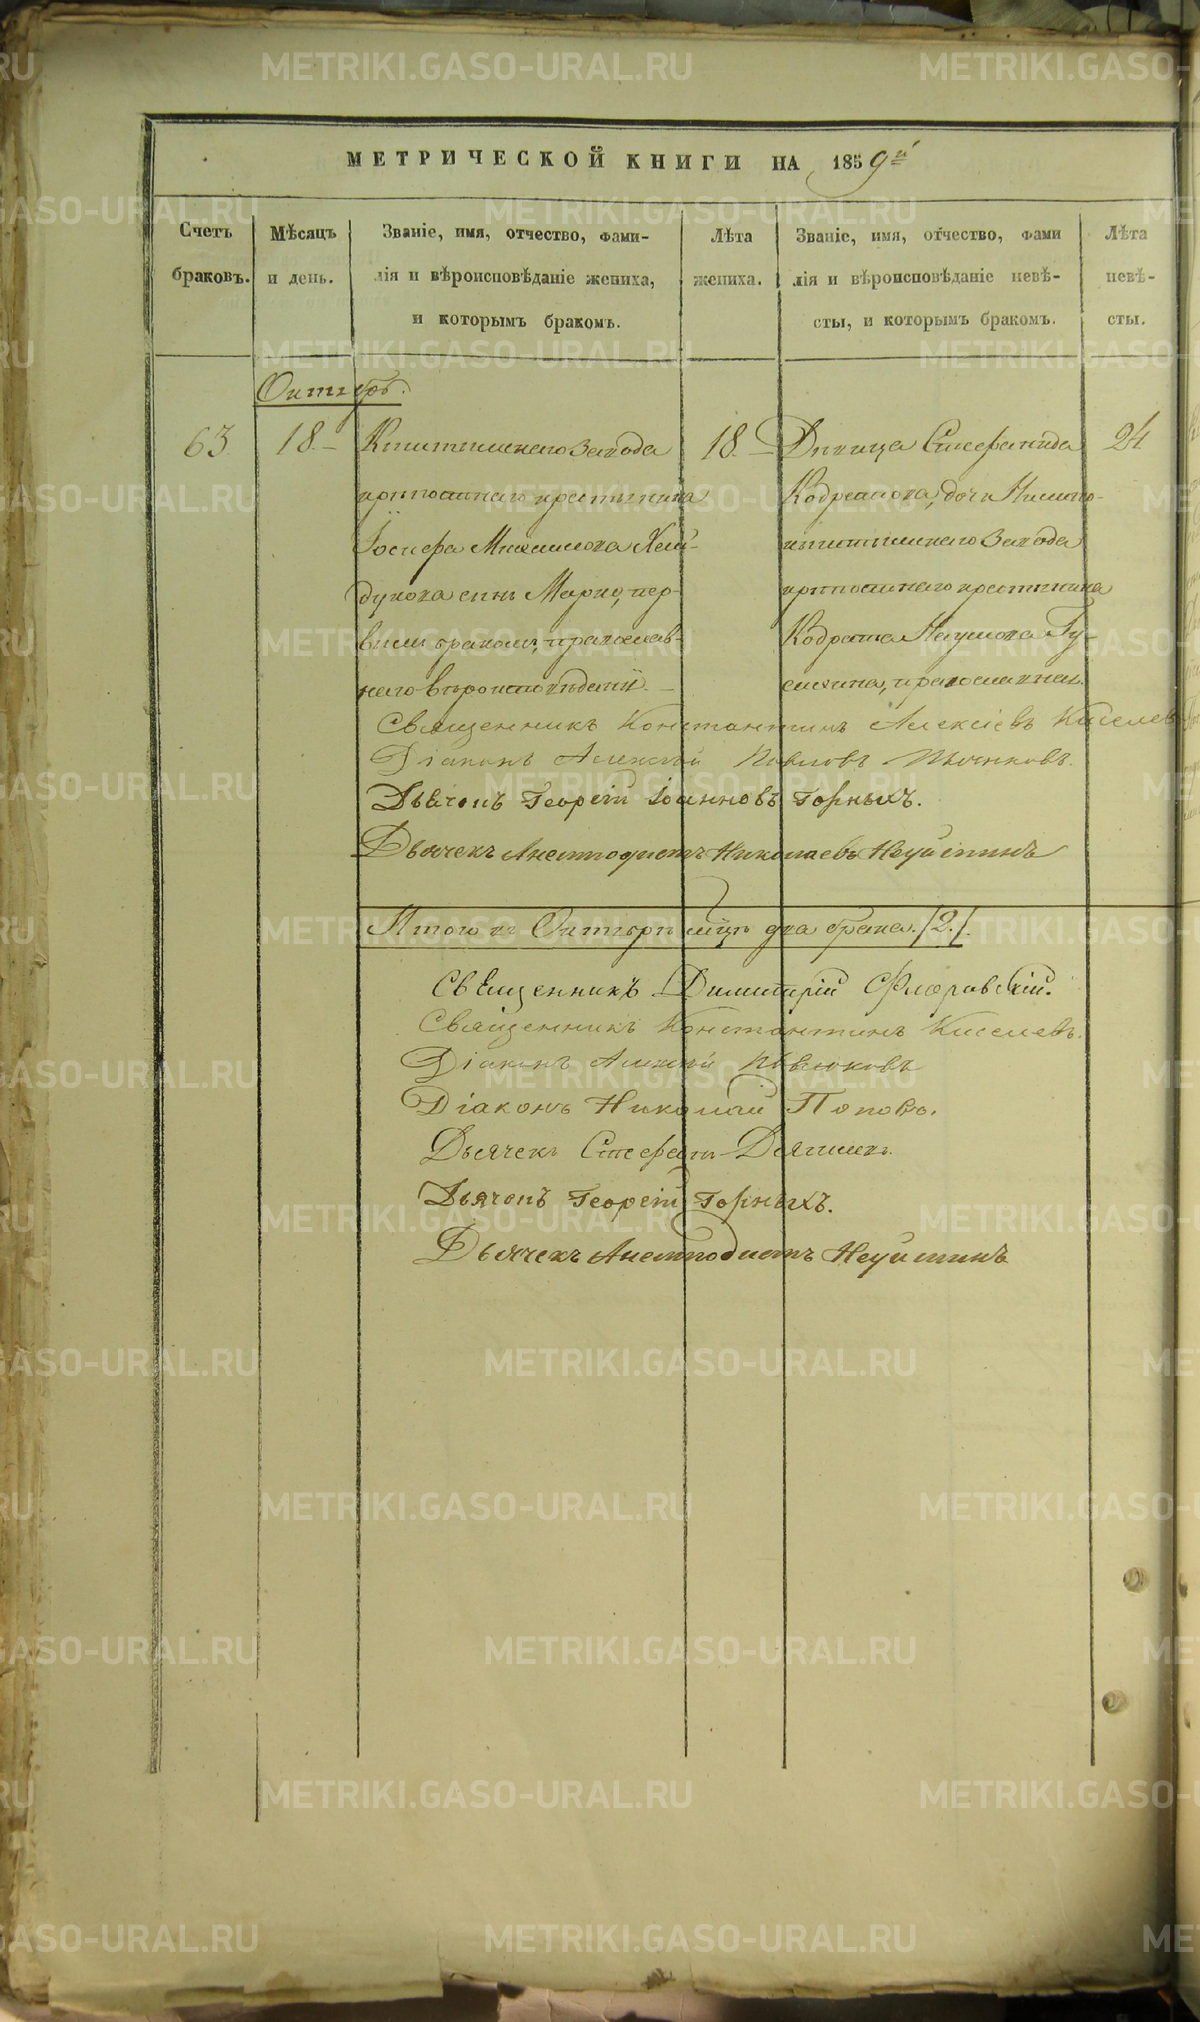 МЕТРИЧЕСКОЙ КНИГИ НА 1859й
Счетъ браковъ.
Мѣсяцъ и день.
Званіе, имя, отчество, фами-
лія и вѣроисповѣданіе жениха,
и которымъ бракомъ.
Лѣта жениха.
Званіе, имя, отчество, фами
лія и вѣроисповѣданіе невѣ-
сты, и которымъ бракомъ.
Лѣта невѣ-
сты.
Октябрь.
63
18.
Кыштымскаго Завода
крѣпостнаго крестьянина
Іосифа Михайлова Хай-
дукова сынъ Марко, пер-
вымъ бракомъ, православ-
наго вѣроисповѣданія.
18.
Дѣвица Стефанида
Кодратова, дочь Нижне-
кыштымскаго Завода
крѣпостнаго крестьянина
Кодрата Наумова Гу-
сихина, православная.
24
Священникъ Константинъ Алексіевъ Киселев
Діаконъ Алексѣй Павловъ
Дьячокъ Георгій Іоанновъ Горныхъ.
Дьячекъ Анемподистъ Николаевъ Неуйминъ
Итого въ Октябрѣ мѣсяцѣ два брака. /2./.
Священникъ Димитрій Флоровскій.
Священникъ Константинъ Киселевъ.
Діаконъ Алексѣй
Діаконъ Николай Поповъ.
Дьячекъ Стефанъ
Дьячокъ Георгій Горныхъ.
Дьячекъ Анемподистъ Неуйминъ
METRIKI.GASO-URAL.RU